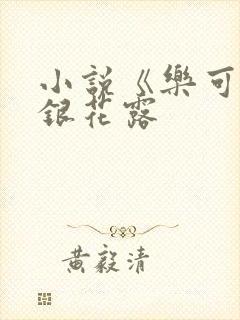 小說《樂可
銀花露
黃毅清